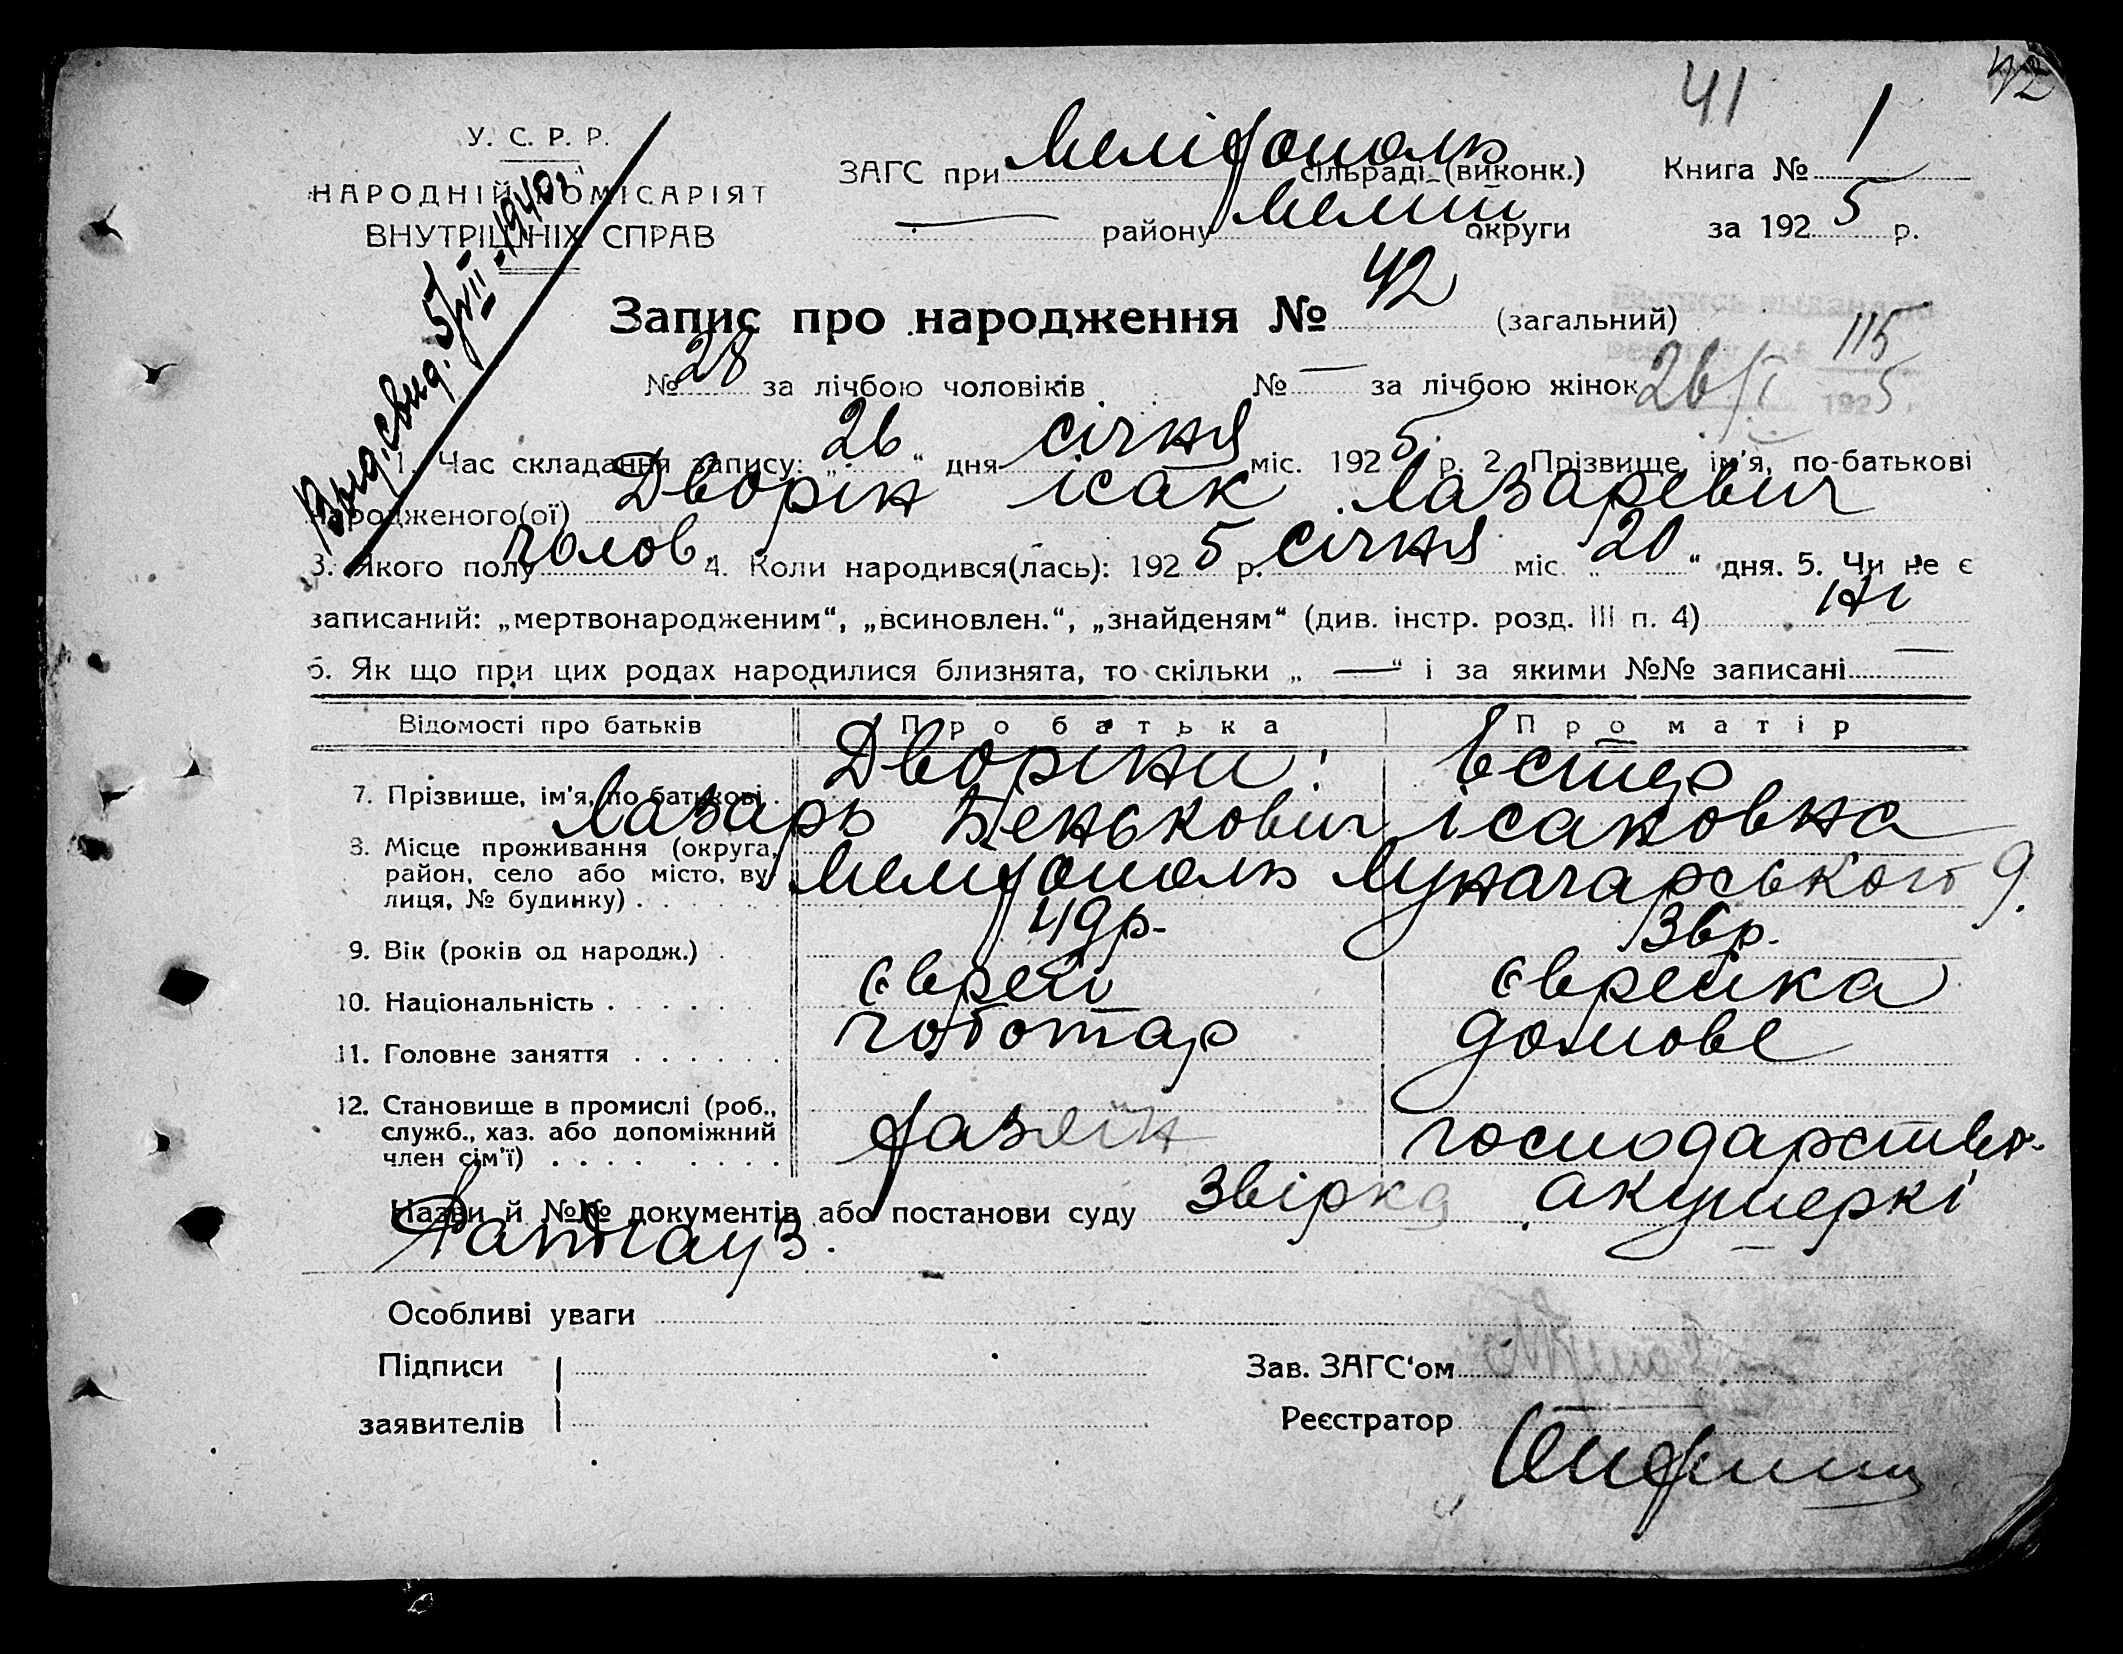 41 42
У. С. Р. Р.
НАРОДНІЙ КОМІСАРІЯТ
ВНУТРІШНІХ СПРАВ
Выд. свид. 5/VIII-1940г.
ЗАГС при Мелітополь сільраді (виконк.) Книга № 1
— району Меліт округи за 1925 р.
Запис про народження № 42 (загальний)
115
№ 28 за лічбою чоловіків № — за лічбою жінок 26/I 1925
1. Час складання запису: „26“ дня січня міс. 1925 р. 2. Прізвище, ім'я, по-батькові
народженого(ої) Дворін Ісак Лазаревич
3. Якого полу чолов. 4. Коли народився(лась): 1925 р. січня міс. „20“ дня. 5. Чи не є
записаний: „мертвонародженим“, „всиновлен.“, „знайденям“ (див. інстр. розд. III п. 4) Ні
6. Як що при цих родах народилися близнята, то скільки „—“ і за якими №№ записані —
Відомості про батьків Про батька Про матір
7. Прізвище, ім'я, по батькові . Дворіни: Естер
Лазарь Бенькович Ісаковна
8. Місце проживання (округа,
район, село або місто, ву-
лиця, № будинку) . . . . . . Мелітополь Луначарського 9.
9. Вік (років од народж.) . 49р. 36р.
10. Національність . . . . . . єврей єврейка
11. Головне заняття . . . . . . чоботар домове
12. Становище в промислі (роб.,
служб., хаз. або допоміжний
член сім'ї) . . . . . . . . господарство.
Назви й №№ документів або постанови суду Звірка акушеркі
Особливі уваги
Підписи
заявителів
Зав. ЗАГС'ом
Реєстратор